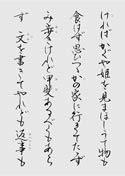 ければかぐや姫を見まほしうて物も
食はず思ひつゝかの家に行きてたゝず
み歩きけれど甲斐あるべくもあら
ず 文を書きてやれども返事も